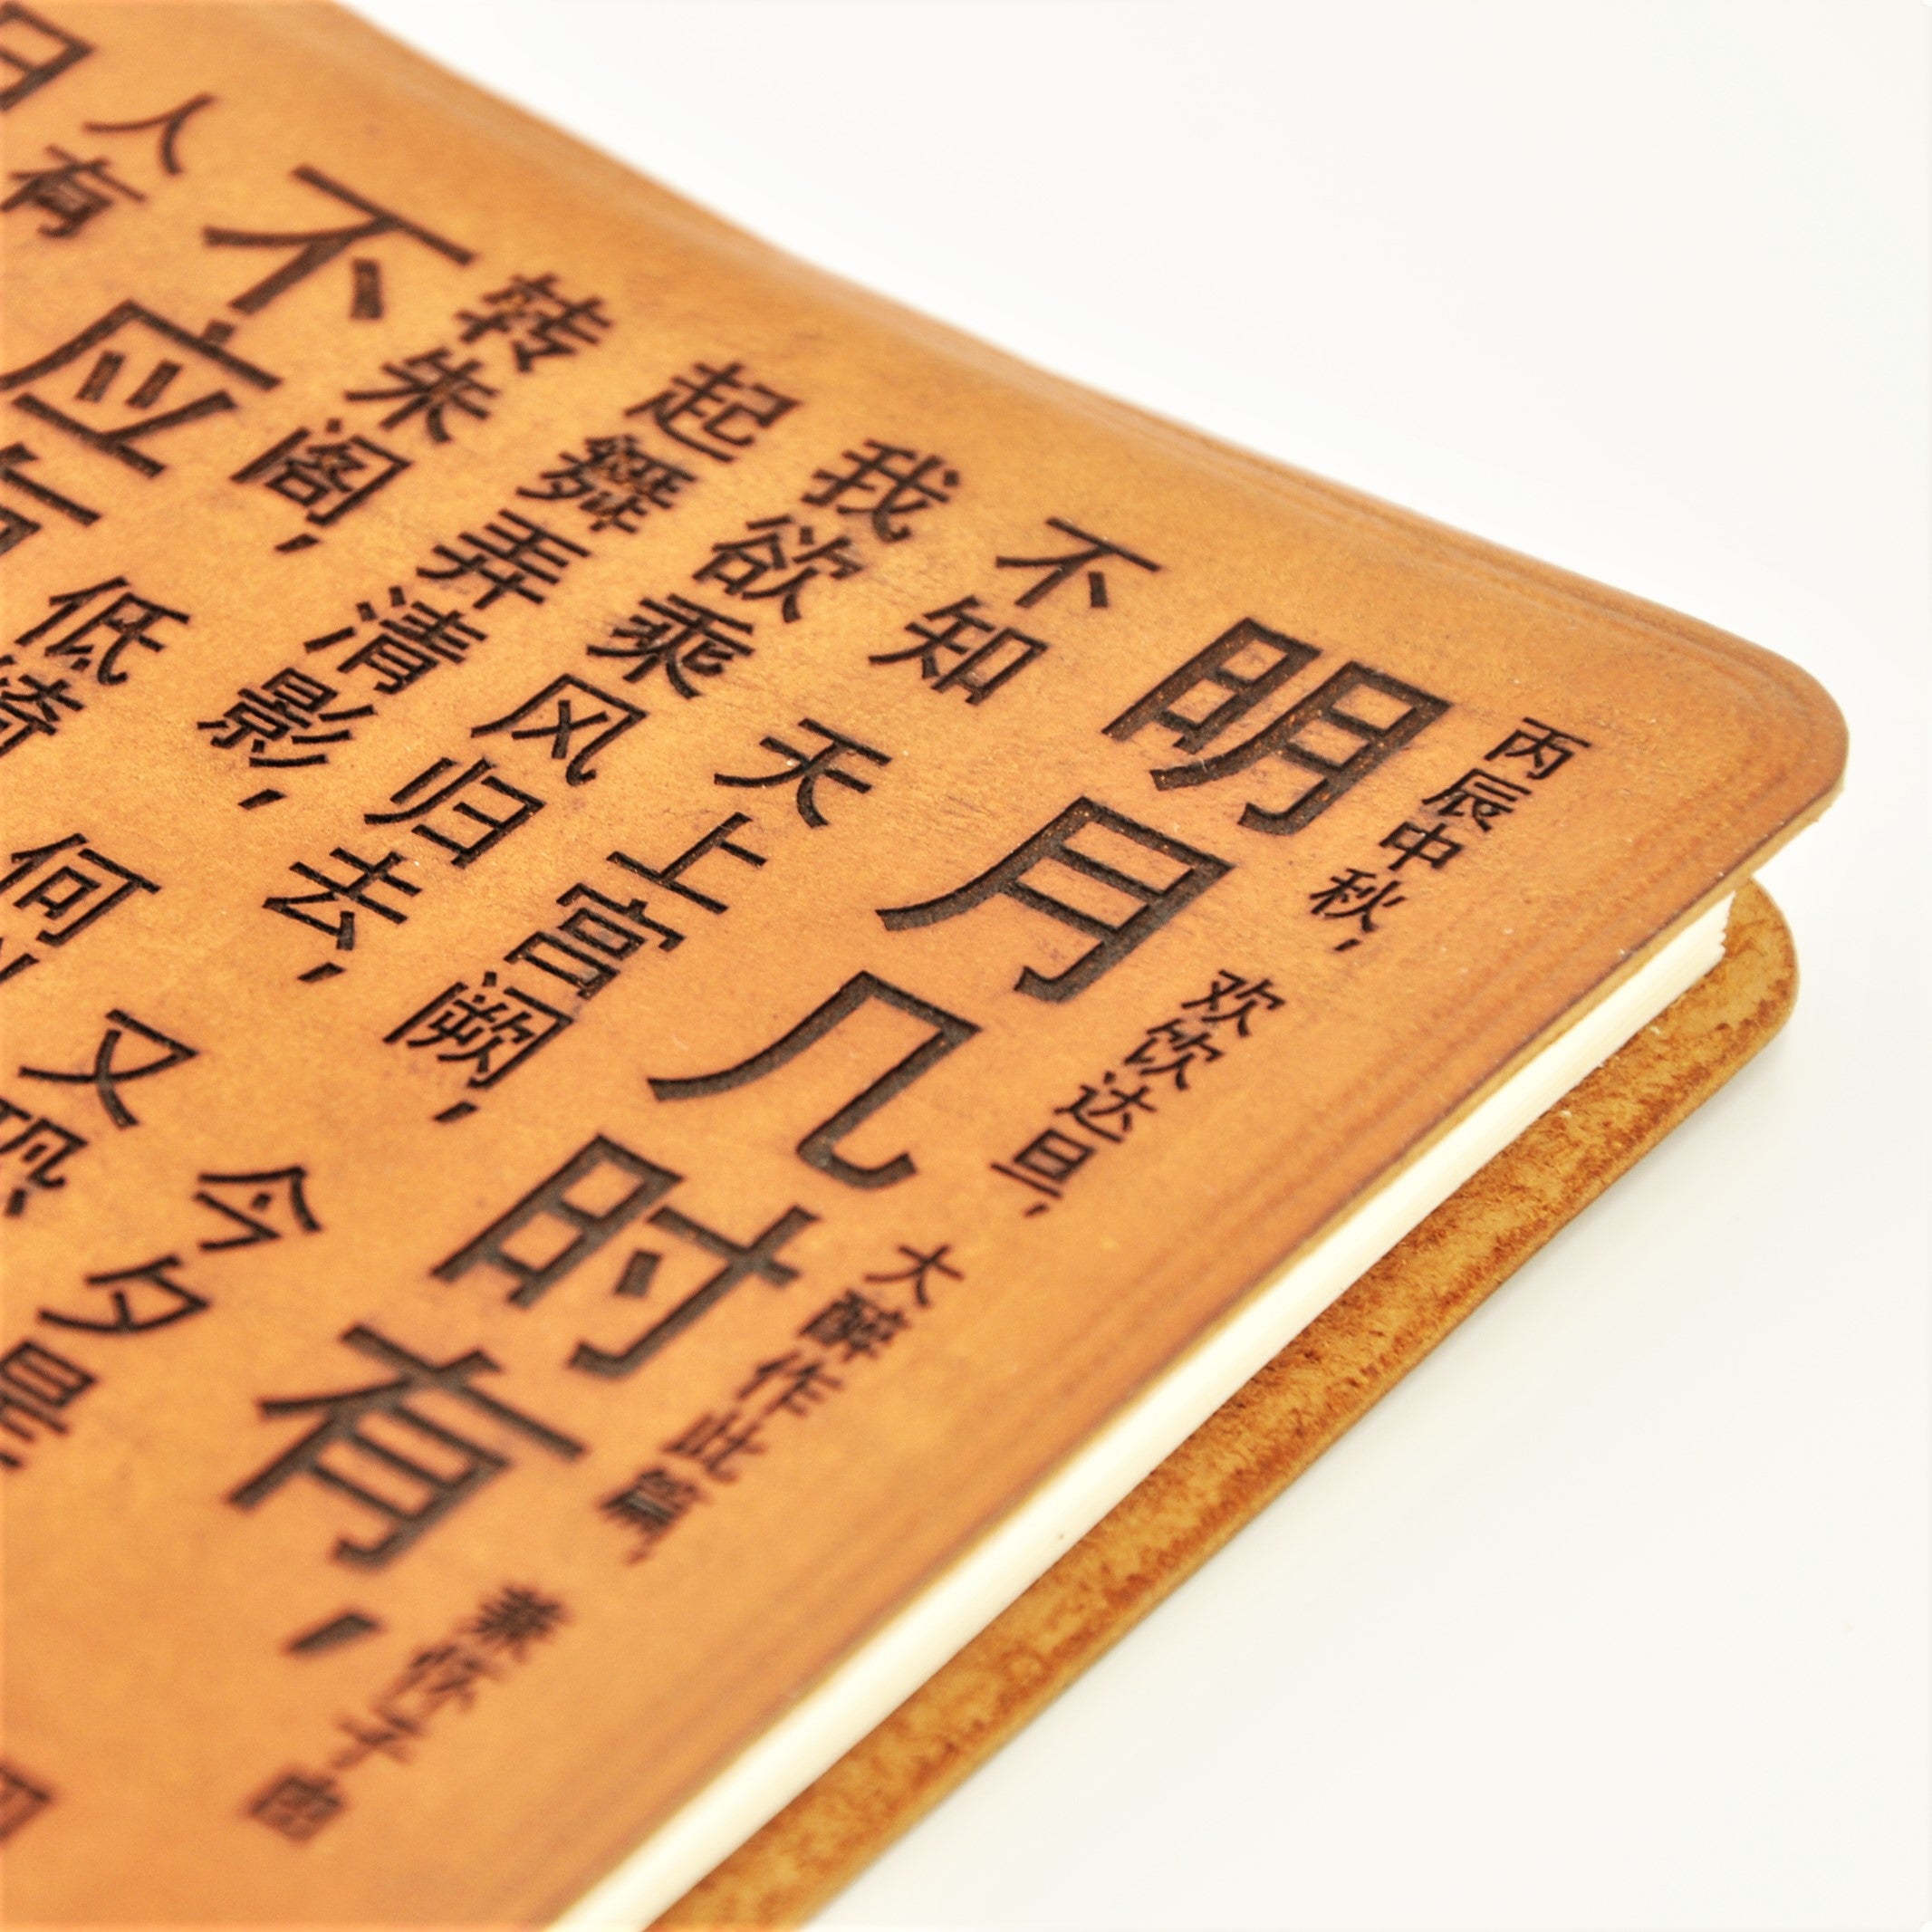 丙辰中秋，欢饮达旦，大醉作此篇，兼怀子由
明月几时有，
不知天上宫阙，今夕是
我欲乘风归去，又恐
起舞弄清影，何
转朱阁，低绮
不应有
人有